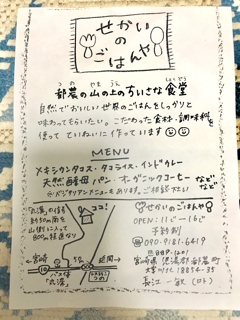 せかい
の
ごはんや
つの やま うえ しょくどう
都農の山の上のちいさな食堂
自然でおいしい世界のごはんをじっくりと
味わってもらいたい。こだわった食材・調味料を
使って ていねいに作っています
MENU
メキシカンタコス・タコライス・インドカレー
天然酵母パン・オーガニックコーヒー などなど
ベジタリアンメニューもあります。ご相談下さい
せかいのごはんや
OPEN: 11じ〜16じ
予約制
090-9181-6419
〒889-1201
宮崎県児湯郡都農町
長江
「丸溝」の信号
から50m南を
山側に入って
800m程道なり
ココ!
←宮崎
延岡→
10
バス停
"丸溝"